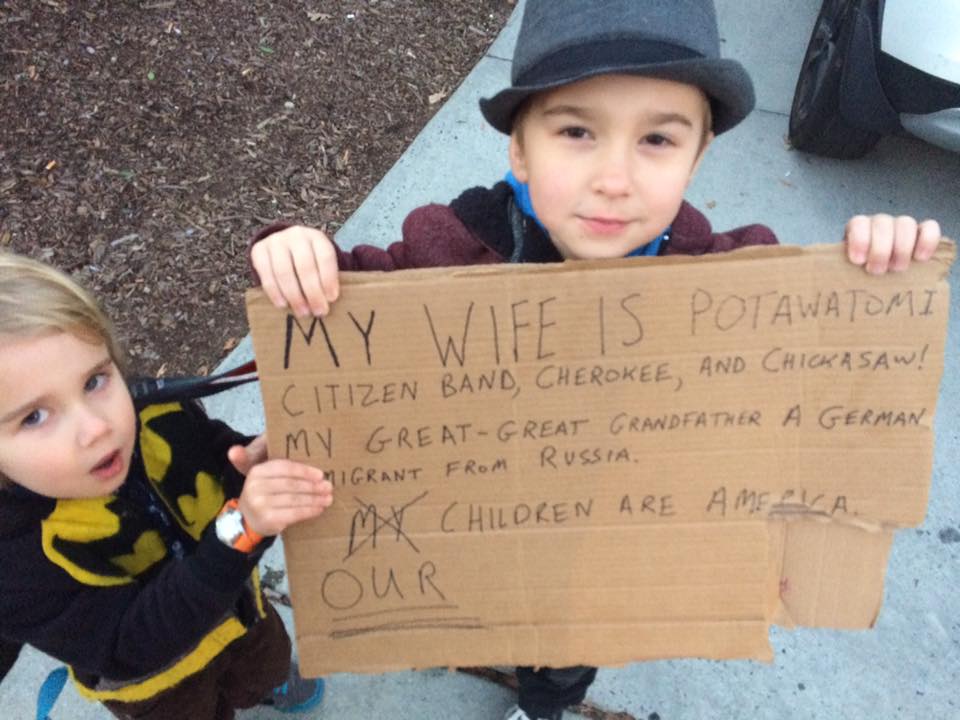 MY WIFE IS POTAWATOMI
CITIZEN BAND, CHEROKEE, AND CHICKASAW!
MY GREAT-GREAT GRANDFATHER A GERMAN
MIGRANT FROM RUSSIA.
MY CHILDREN ARE AMERICA.
OUR